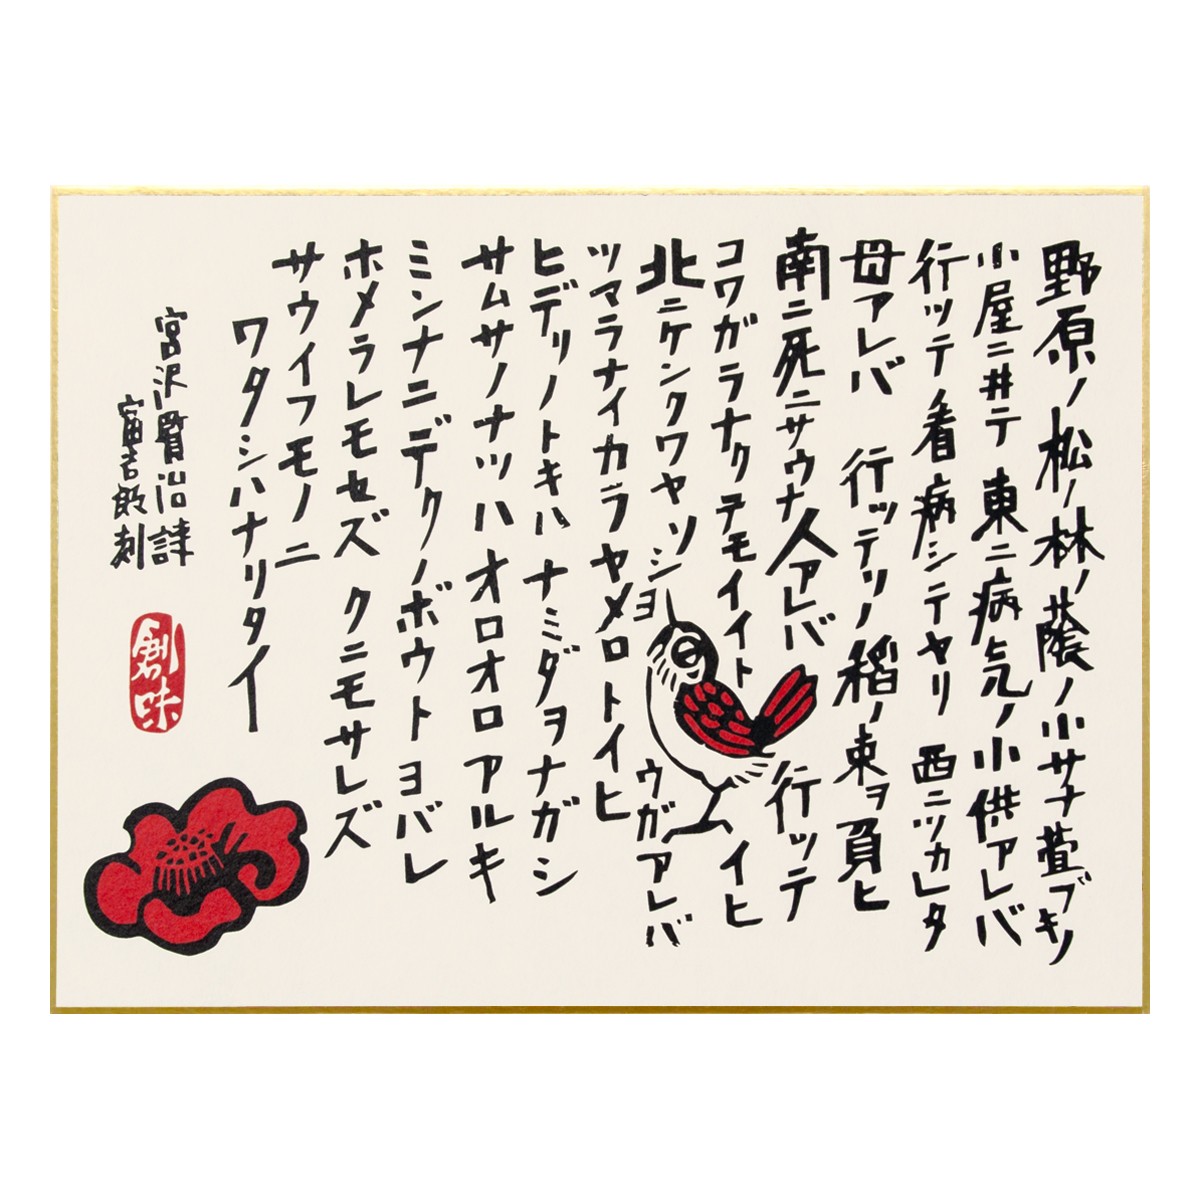 野原ノ松ノ林ノ蔭ノ小サナ萱ブキノ
小屋ニ井テ 東ニ病気ノ小供アレバ
行ッテ看病シテヤリ 西ニツカレタ
母アレバ 行ッテソノ稲ノ束ヲ負ヒ
南ニ死ニサウナ人アレバ 行ッテ
コワガラナクテモイイト イヒ
北ニケンクワヤソショウガアレバ
ツマラナイカラヤメロトイヒ
ヒデリノトキハナミダヲナガシ
サムサノナツハオロオロアルキ
ミンナニデクノボウトヨバレ
ホメラレモセズ クニモサレズ
サウイフモノニ
ワタシハナリタイ
宮沢賢治詩
富吉郎刻
創味